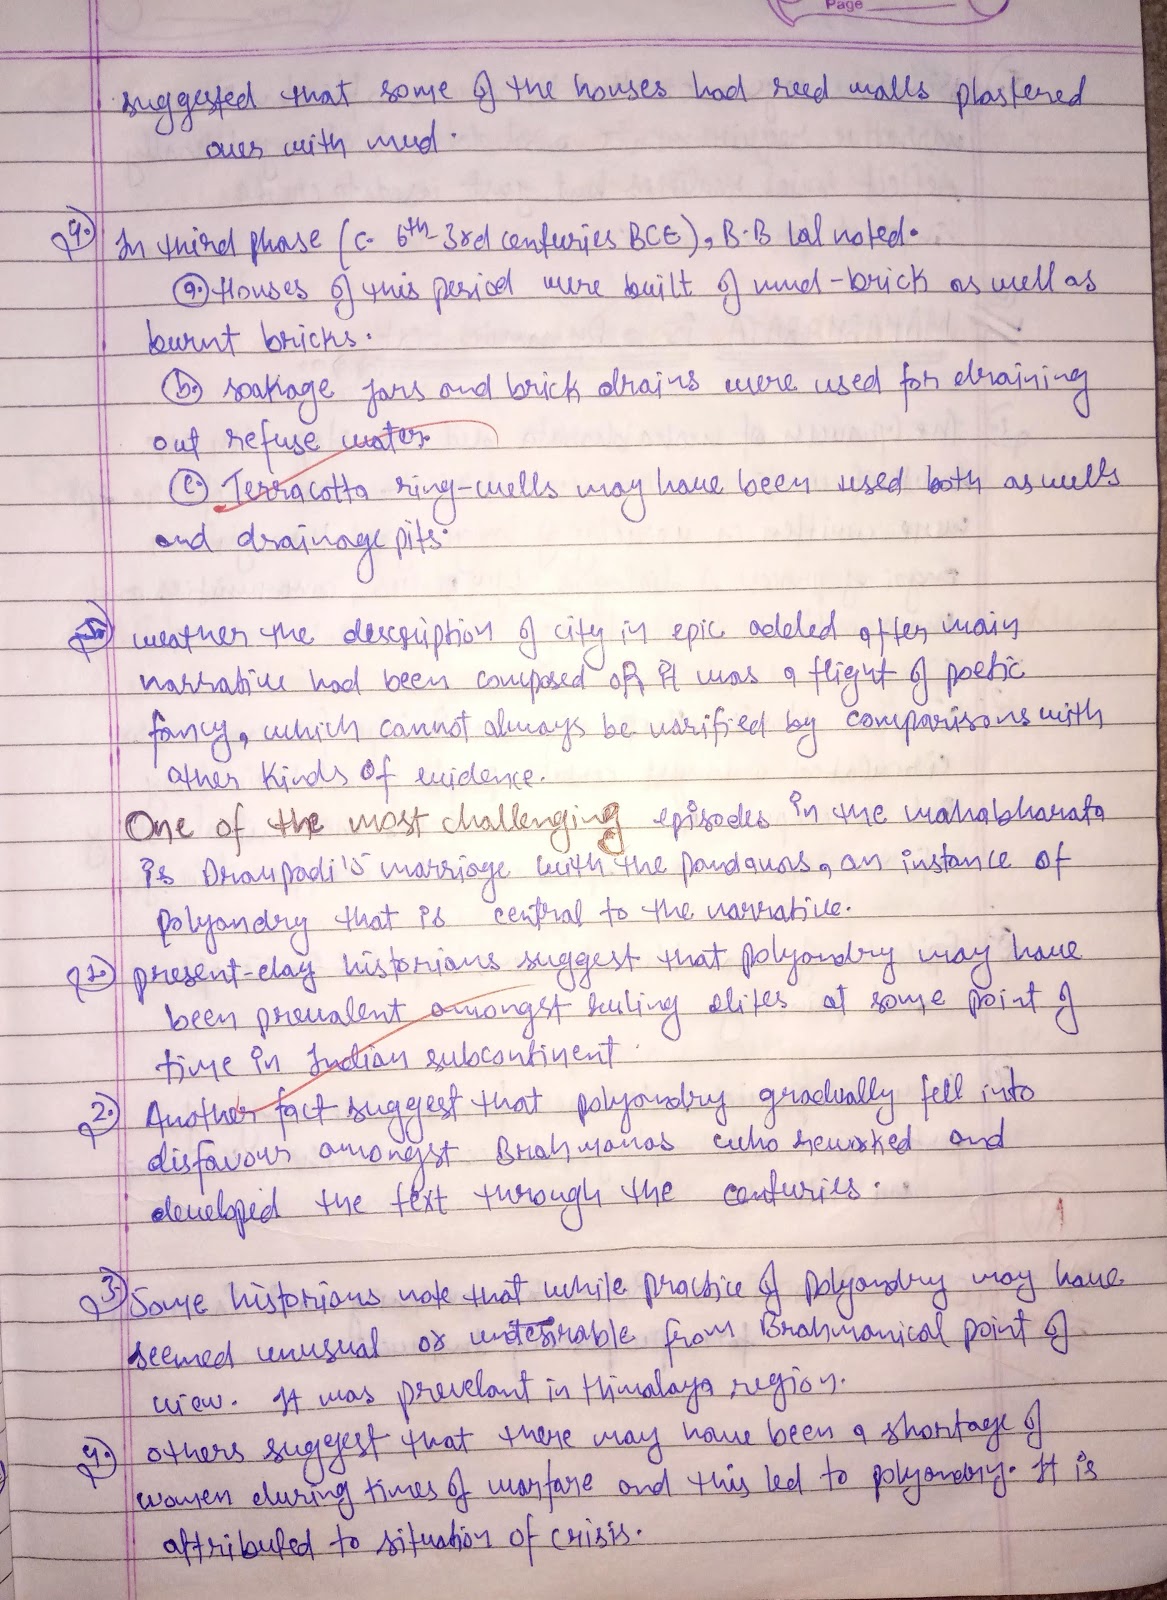 Page
suggested that some of the houses had reed walls plastered
over with mud.
4. In third phase (c. 6th-3rd centuries BCE), B.B lal noted.
a. Houses of this period were built of mud-brick as well as
burnt bricks.
b. soakage jars and brick drains were used for draining
out refuse water.
c. Terracotta ring-wells may have been used both as wells
and drainage pits.
5. weather the description of city in epic added after main
narrative had been composed or it was a flight of poetic
fancy, which cannot always be varified by comparisons with
other kinds of evidence.
One of the most challenging episodes in the mahabharata
is Draupadi's marriage with the pandavas, an instance of
polyandry that is central to the narrative.
1. present-day historians suggest that polyandry may have
been prevalent amongst ruling elites at some point of
time in Indian subcontinent.
2. Another fact suggest that polyandry gradually fell into
disfavour amongst Brahmanas who reworked and
developed the text through the centuries.
3. Some historians note that while practice of polyandry may have
seemed unusual or undesirable from Brahmanical point of
view. It was prevelant in Himalaya region.
4. others suggest that there may have been a shortage of
women during times of warfare and this led to polyandry. It is
attributed to situation of crisis.